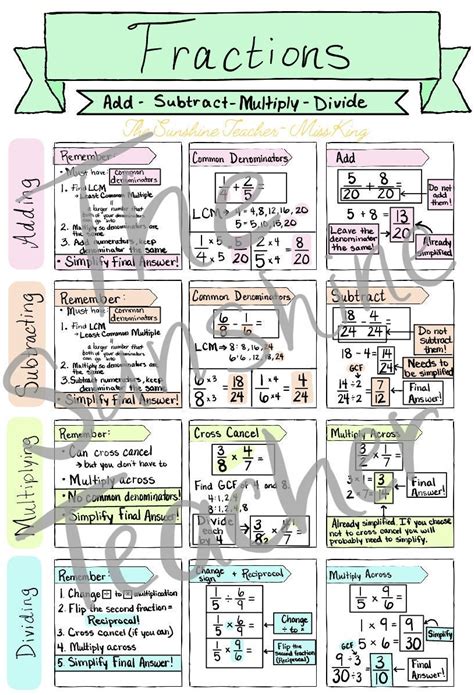 Fractions
Add - Subtract - Multiply - Divide
The Sunshine Teacher - Miss King
The Sunshine Teacher
Adding
Remember:
• Must have: common denominators
1. Find LCM
→ Least Common Multiple
a larger number that
both of your denominators
can go into
2. Multiply so denominators are
the same
3. Add numerators, keep
denominator the same
• Simplify Final Answer!
Common Denominators
1/4 + 2/5 =
LCM→ 4 - 4,8,12,16,20
5 - 5,10,15,20
1/4 x5 = 5/20 2/5 x4 = 8/20
Add
5/20 + 8/20 =
Do not add them!
5 + 8 = 13/20
Leave the
denominator
the same!
Already simplified!
Subtracting
Remember:
• Must have: common denominators
1. Find LCM
→ Least Common Multiple
a larger number that
both of your denominators
can go into
2. Multiply so denominators are
the same
3. Subtract numerators, keep
denominator the same
• Simplify Final Answer!
Common Denominators
6/8 - 1/6 =
8 - 8,16,24
6 - 6,12,18,24
6/8 x3 = 18/24 1/6 x4 = 4/24
Subtract
18/24 - 4/24 =
Do not subtract them!
18 - 4 = 14/24
Needs to be simplified!
GCF
14 ÷ 2 = 7
24 ÷ 2 = 12
Final Answer!
Multiplying
Remember:
• Can cross cancel
→ but you don't have to
• Multiply across
• No common denominators!
• Simplify Final Answer!
Cross Cancel
3/8 x 4/7 =
Find GCF of 4 and 8.
4: 1,2,4
8: 1,2,4,8
Divide each by 4
Multiply Across
3/2 x 1/7 =
3/2 x 1/7 = 3/14
Final Answer!
Already simplified. If you choose
not to cross cancel you will
probably need to simplify.
Dividing
Remember:
1. Change ÷ to x multiplication
2. Flip the second fraction =
Reciprocal!
3. Cross cancel (if you can)
4. Multiply across
5. Simplify Final Answer!
Change sign + Reciprocal
1/5 ÷ 6/9 =
1/5 x 6/9
Change ÷ to x
1/5 x 9/6
Flip the second fraction (Reciprocal)
Multiply Across
1/5 x 9/6 =
1/5 x 9/6 = 9/30
Simplify
GCF
9 ÷ 3 = 3
30 ÷ 3 = 10
Final Answer!